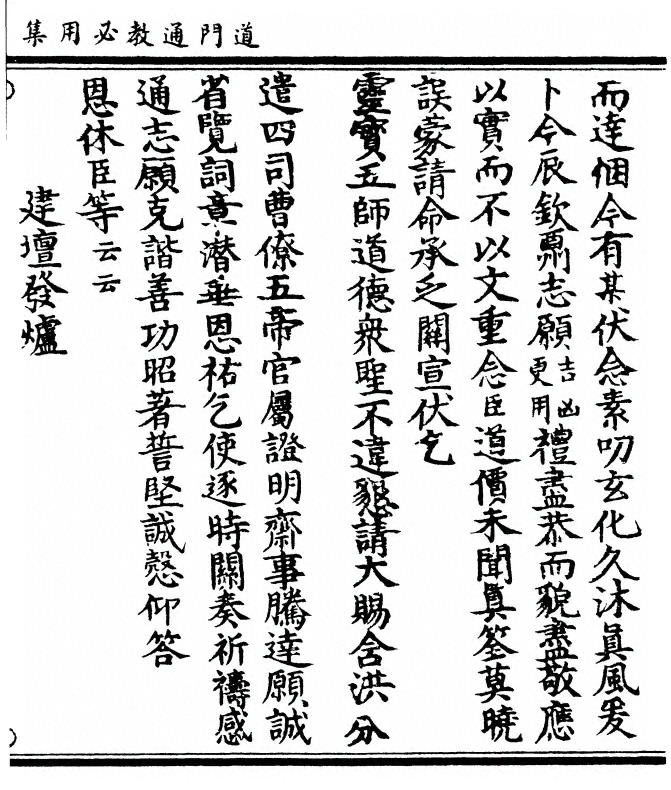 道門通教必用集
而達悃今有某伏念素叨玄化久沐眞風爰
卜今辰欽覃志願吉凶更用禮盡恭而貌盡敬應
以實而不以文重念臣道價未聞眞筌莫曉
誤蒙請命承乏關宣伏乞
靈寶五師道德衆聖不違懇請大賜含洪分
遣四司曹僚五帝官屬證明齋事騰達願誠
省覽詞章潛垂恩祐乞使逐時關奏祈禱感
通志願克諧善功昭著誓堅誠慤仰答
恩休臣等云云
建壇發爐